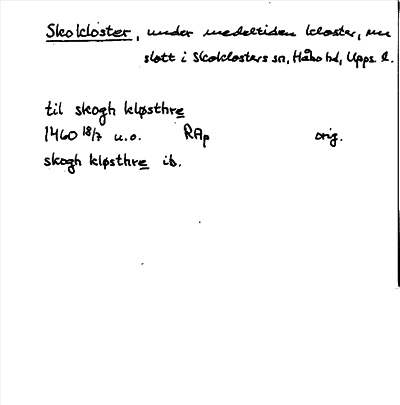 Skokloster, under medeltiden kloster, nu
slott i Skoklosters sn, Håbo hd, Upps. l.
til skogh kløsthre
1460 18/7 u.o. RAp orig.
skogh kløsthre ib.